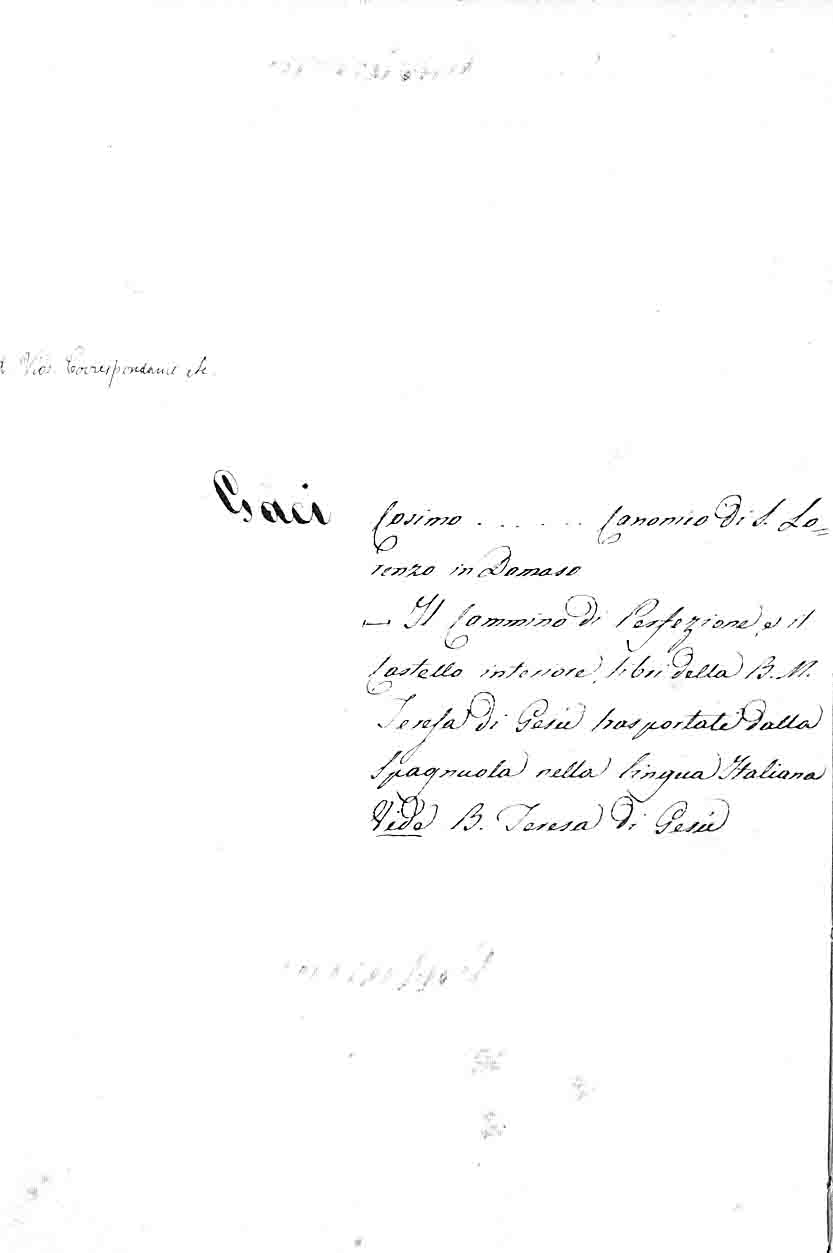 Vies. Correspondance etc.
Gaci Cosimo . . . . . . Canonico di S. Lo=
renzo in Damaso
— Il Cammino di Perfezione, e il
Castello interiore, libri della B. M.
Teresa di Gesù trasportate dalla
Spagnuola nella lingua Italiana
Vide B. Teresa di Gesù